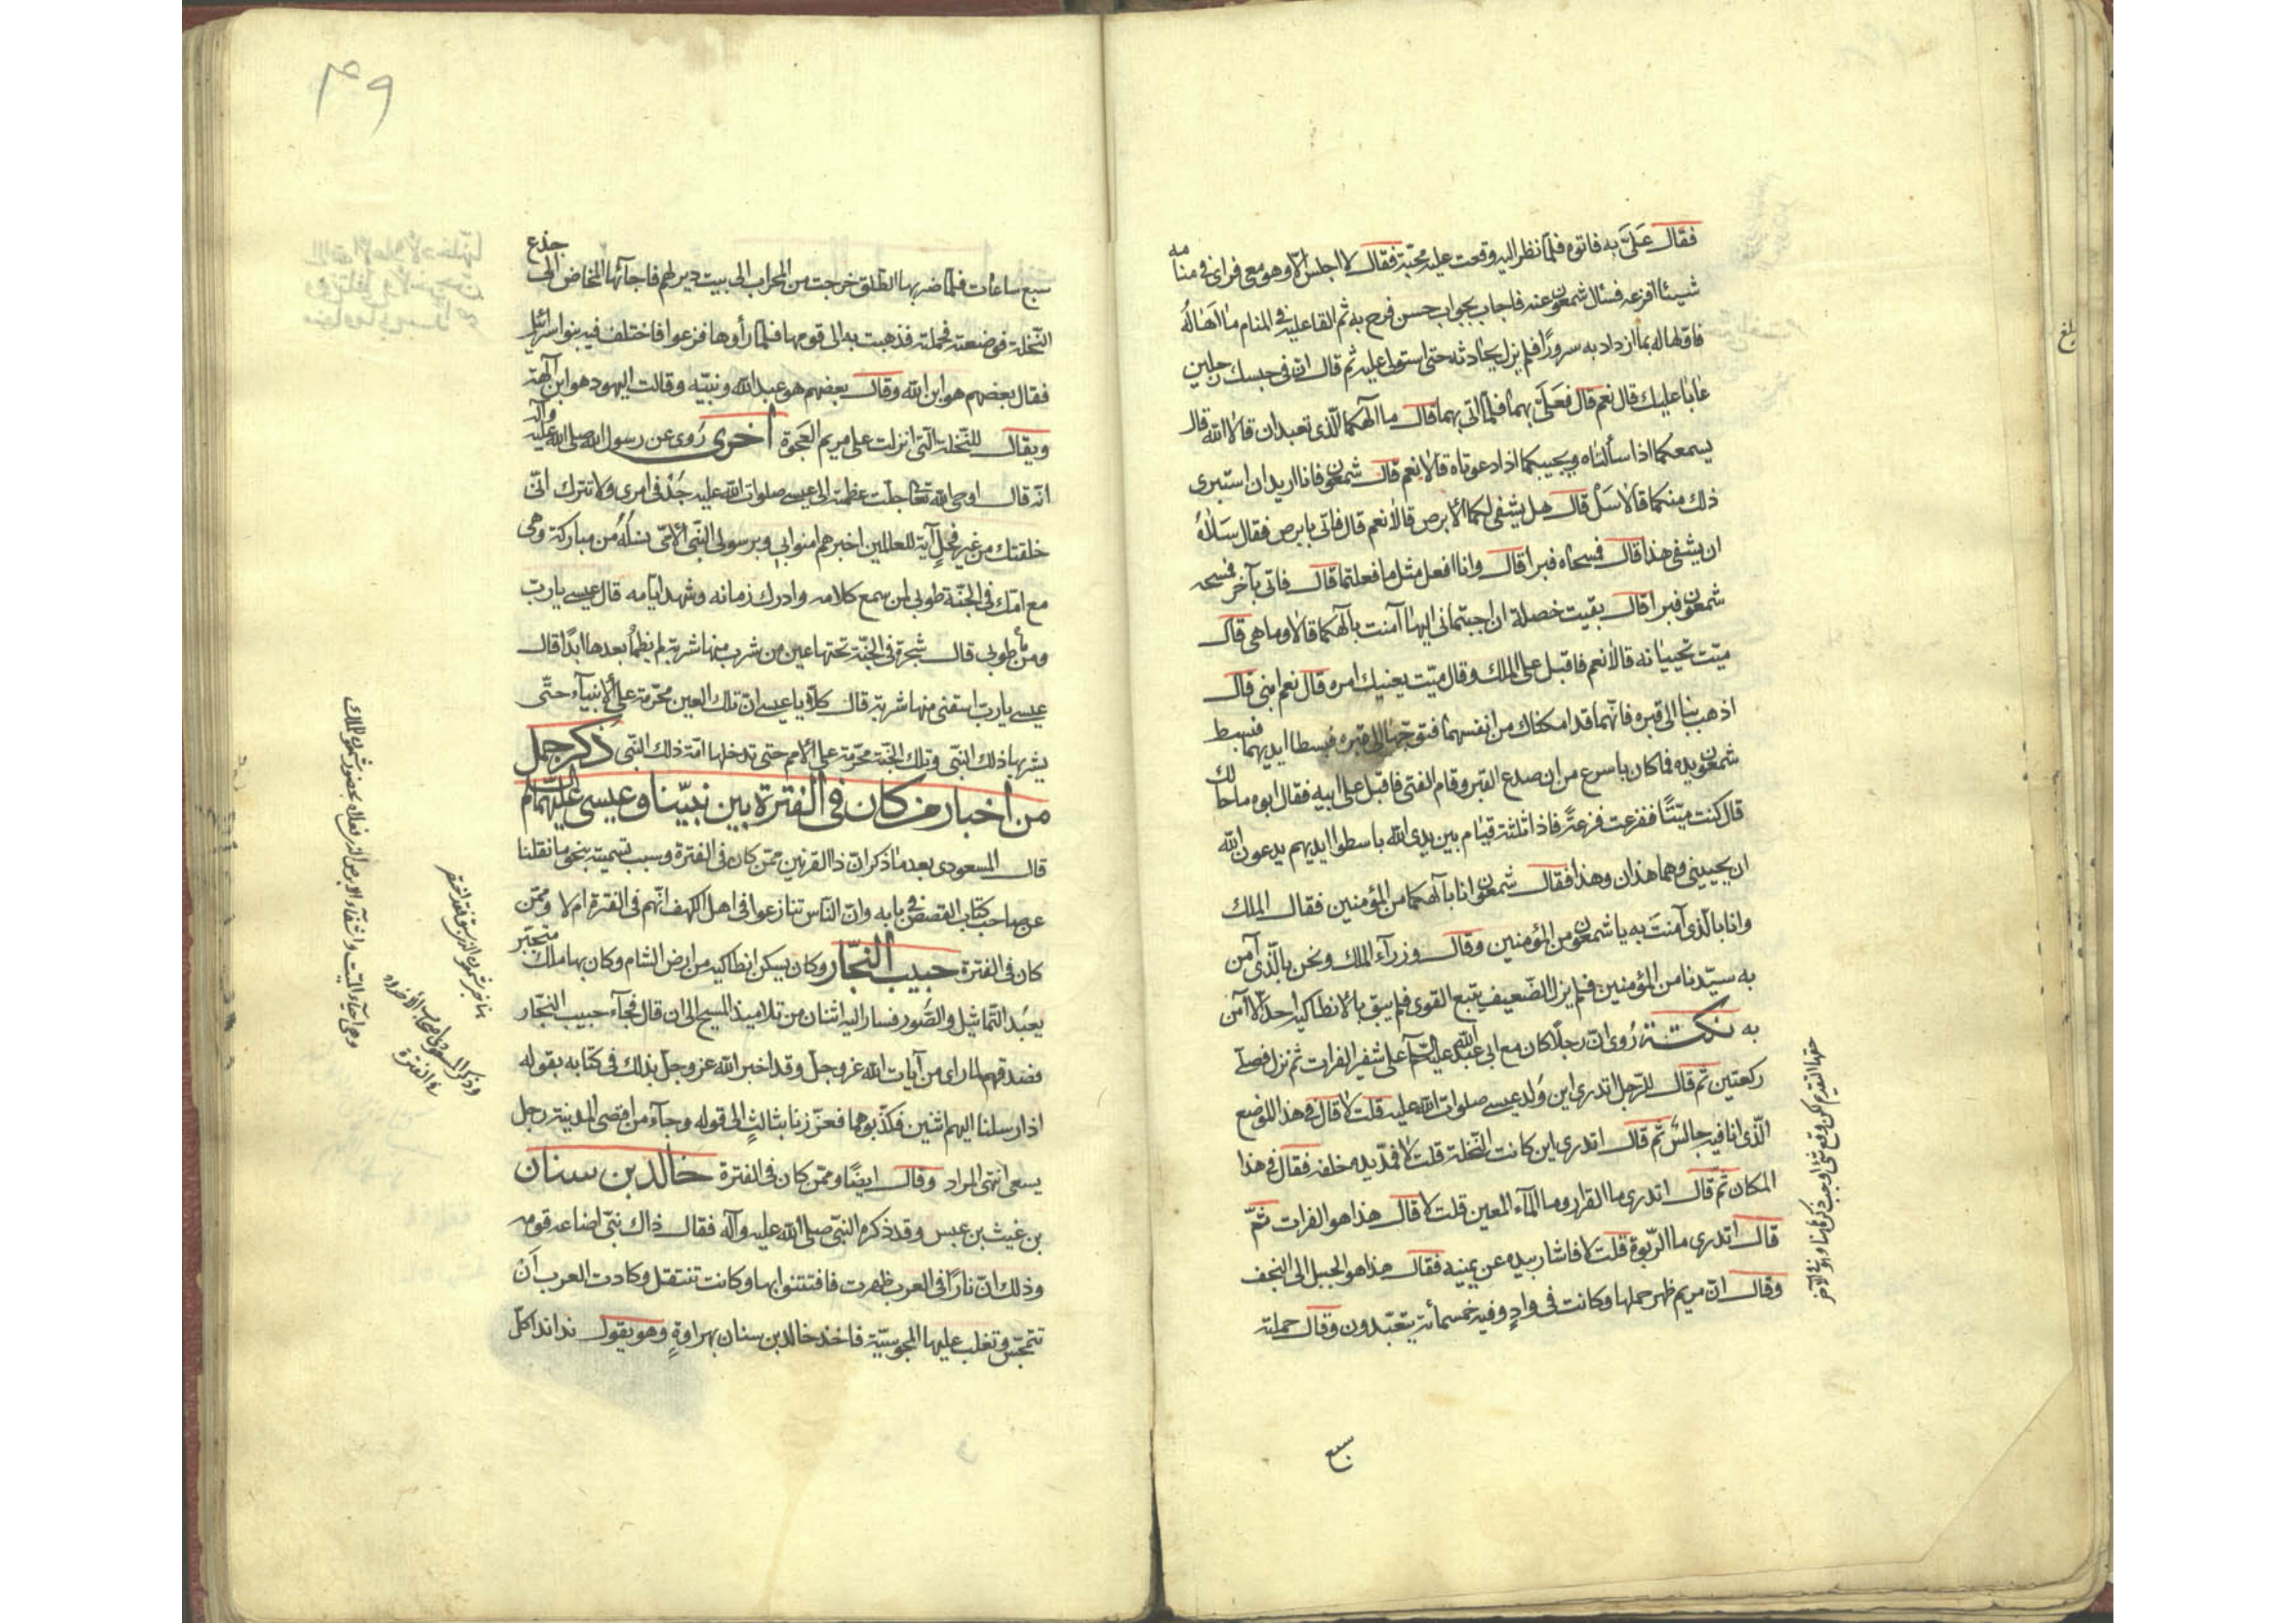 فقال عَلَىَّ به فاتوه فلمّا نظر اليه وقعت عليه محبّته فقال لا اجلس الّا وهو معى فراى فى منامه
شيئا افزعه فسئال شمعون عنه فاجاب بجواب حسن فرح به ثم القا عليه فى المنام ما اهاله
فاولها له بما ازداد به سرورًا فلم يزل يحادثه حتى استولى عليه ثم قال انّ فى حبسك رجلين
عابا عليك قال نعم قال فَعَلَىَّ بهما فلمّا اتى بهما قال ما آلهكما الّذى تعبدان قالا الله قال
يسمعكما اذا سألتماه ويجيبكما اذا دعوتماه قالا نعم قال شمعون فانا اريد ان استبرى
ذلك منكما قالا سَلْ قال هل يشفى لكما الابرص قالا نعم قال فاتى بابرص فقال سَلاهُ
ان يشفى هذا قال فمسحاه فبرا قال وانا افعل مثل ما فعلتما قال فاتى بآخر فمسحه
شمعون فبرا قال بقيت خصلة ان اجبتمانى اليها آمنت بآلهكما قالا وما هى قال
ميّت تحييانه قالا نعم فاقبل على الملك وقال ميّت يعنيك امره قال نعم ابنى قال
اذهب بنا الى قبره فانّهما قد امكناك من انفسهما فتوجّهوا الى قبره فبسطا ايديهما فبسط
شمعون يده فما كان باسرع من ان صدع القبر وقام الفتى فاقبل على ابيه فقال ابوه ما حالك
قال كنت ميّتًا ففزعت فزعةً فاذا ثلثة قيام بين يدى الله باسطوا ايديهم يدعون الله
ان يحيينى وهما هذان وهذا فقال شمعون انا بآلهكما من المؤمنين فقال الملك
وانا بالّذى آمنتَ به يا شمعون من المؤمنين وقال وزرآء الملك ونحن بالّذى آمن
به سيّدنا من المؤمنين فلم يزل الضّعيف يتبع القوى فلم يبق بالانطاكيه احد الّا آمن
به نكتة رُوى انّ رجلًا كان مع ابى عبد الله عليه السّلم على شفير الفرات ثم نزل فصلّى
ركعتين ثم قال للرّجل اتدرى اين وُلد عيسى صلوات الله عليه قلت لا قال فى هذا الموضع
الّذى انا فيه جالسٌ ثم قال اتدرى اين كانت النّخلة قلت لا فمدّ يده خلفه فقال فى هذا
المكان ثم قال اتدرى ما القرار وما المآء المعين قلت لا قال هذا هو الفرات ثمّ
قال اتدرى ما الرّبوة قلت لا فاشار بيده عن يمينه فقال هذا هو الجبل الى النجف
وقال انّ مريم ظهر حملها وكانت فى وادٍ وفيه خمسمأة يتعبّدون وقال حملته
سبع
٤٩
سبع ساعات فلمّا ضربها الطّلق خرجت من المحراب الى بيت دير لهم فاجآئها المخاض الى جذع
النّخلة فوضعته فحملته فذهبت به الى قومها فلمّا رأوها فزعوا فاختلف فيه بنو اسرآئيل
فقال بعضهم هو ابن الله وقال بعضهم هو عبد الله ونبيّه وقالت اليهود هو ابن الهنة
ويقال للنّخلة الّتى انزلت على مريم العَجوَة اخرى رُوى عن رسول الله صلى الله عليه وآله
انّه قال اوحى الله تعالى جلّت عظمته الى عيسى صلوات الله عليه جُدّ فى امرى ولا تترك انّى
خلقتك من غير فحلٍ آية للعالمين اخبرهم امنوا بى وبرسولى النّبى الامّى نسلُه من مباركة وهى
مع امّك فى الجنّة طوبى لمن سمع كلامه وادرك زمانه وشهد ايّامه قال عيسى يا ربّ
وما طوبى قال شجرة فى الجنّة تحتها عين من شرب منها شربة لم يظمأ بعدها ابدًا قال
عيسى يا ربّ اسقنى منها شربة قال كلّا يا عيسى انّ تلك العين محرّمة على الانبيآء حتّى
يشربها ذلك النّبى وتلك الجنّة محرّمة على الامم حتى تدخلها امّة ذلك النّبى ذكر جمل
من اخبار من كان فى الفترة بين نبيّنا وعيسى عليهما السّلام
قال المسعودى بعد ما ذكر انّ ذا القرنين ممّن كان فى الفترة وسبب تسميته بنحو ما نقلنا
عن صاحب كتاب القصص فى بابه وانّ النّاس تنازعوا فى اهل الكهف انّهم فى الفترة ام لا وممّن
كان فى الفترة حبيب النجّار وكان يسكن انطاكيه من ارض الشام وكان بها ملك متجبّر
يعبُد التّماثيل والصُّور فسار اليه اثنان من تلاميذ المسيح الى ان قال فجآء حبيب النجّار
فصدقهم لما راى من آيات الله عزوجل وقد اخبر الله عزوجل بذلك فى كتابه بقوله
اذ ارسلنا اليهم اثنين فكذّبوهما فعزّزنا بثالثٍ الى قوله وجآء من اقصى المدينة رجل
يسعى انتهى المراد وقال ايضًا وممّن كان فى الفترة خالد بن سنان
بن غيث بن عبس وقد ذكره النّبى صلى الله عليه وآله فقال ذاك نبىّ اضاعه قومه
وذلك انّ نارًا فى العرب ظهرت فافتتنوا بها وكانت تنتقل وكادت العرب اَن
تتمجّس وتغلب عليها المجوسيّة فاخذ خالد بن سنان بهراوةٍ وهو يقول ندا ندا كلّ